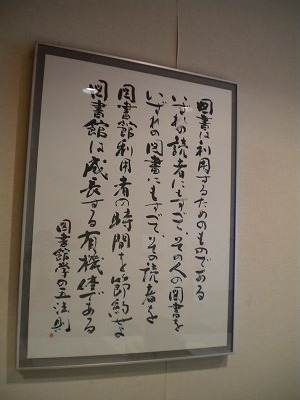 図書は利用するためのものである
いずれの読者にもすべて、その人の図書を
いずれの図書にもすべて、その読者を
図書館利用者の時間を節約せよ
図書館は成長する有機体である
図書館学の五法則